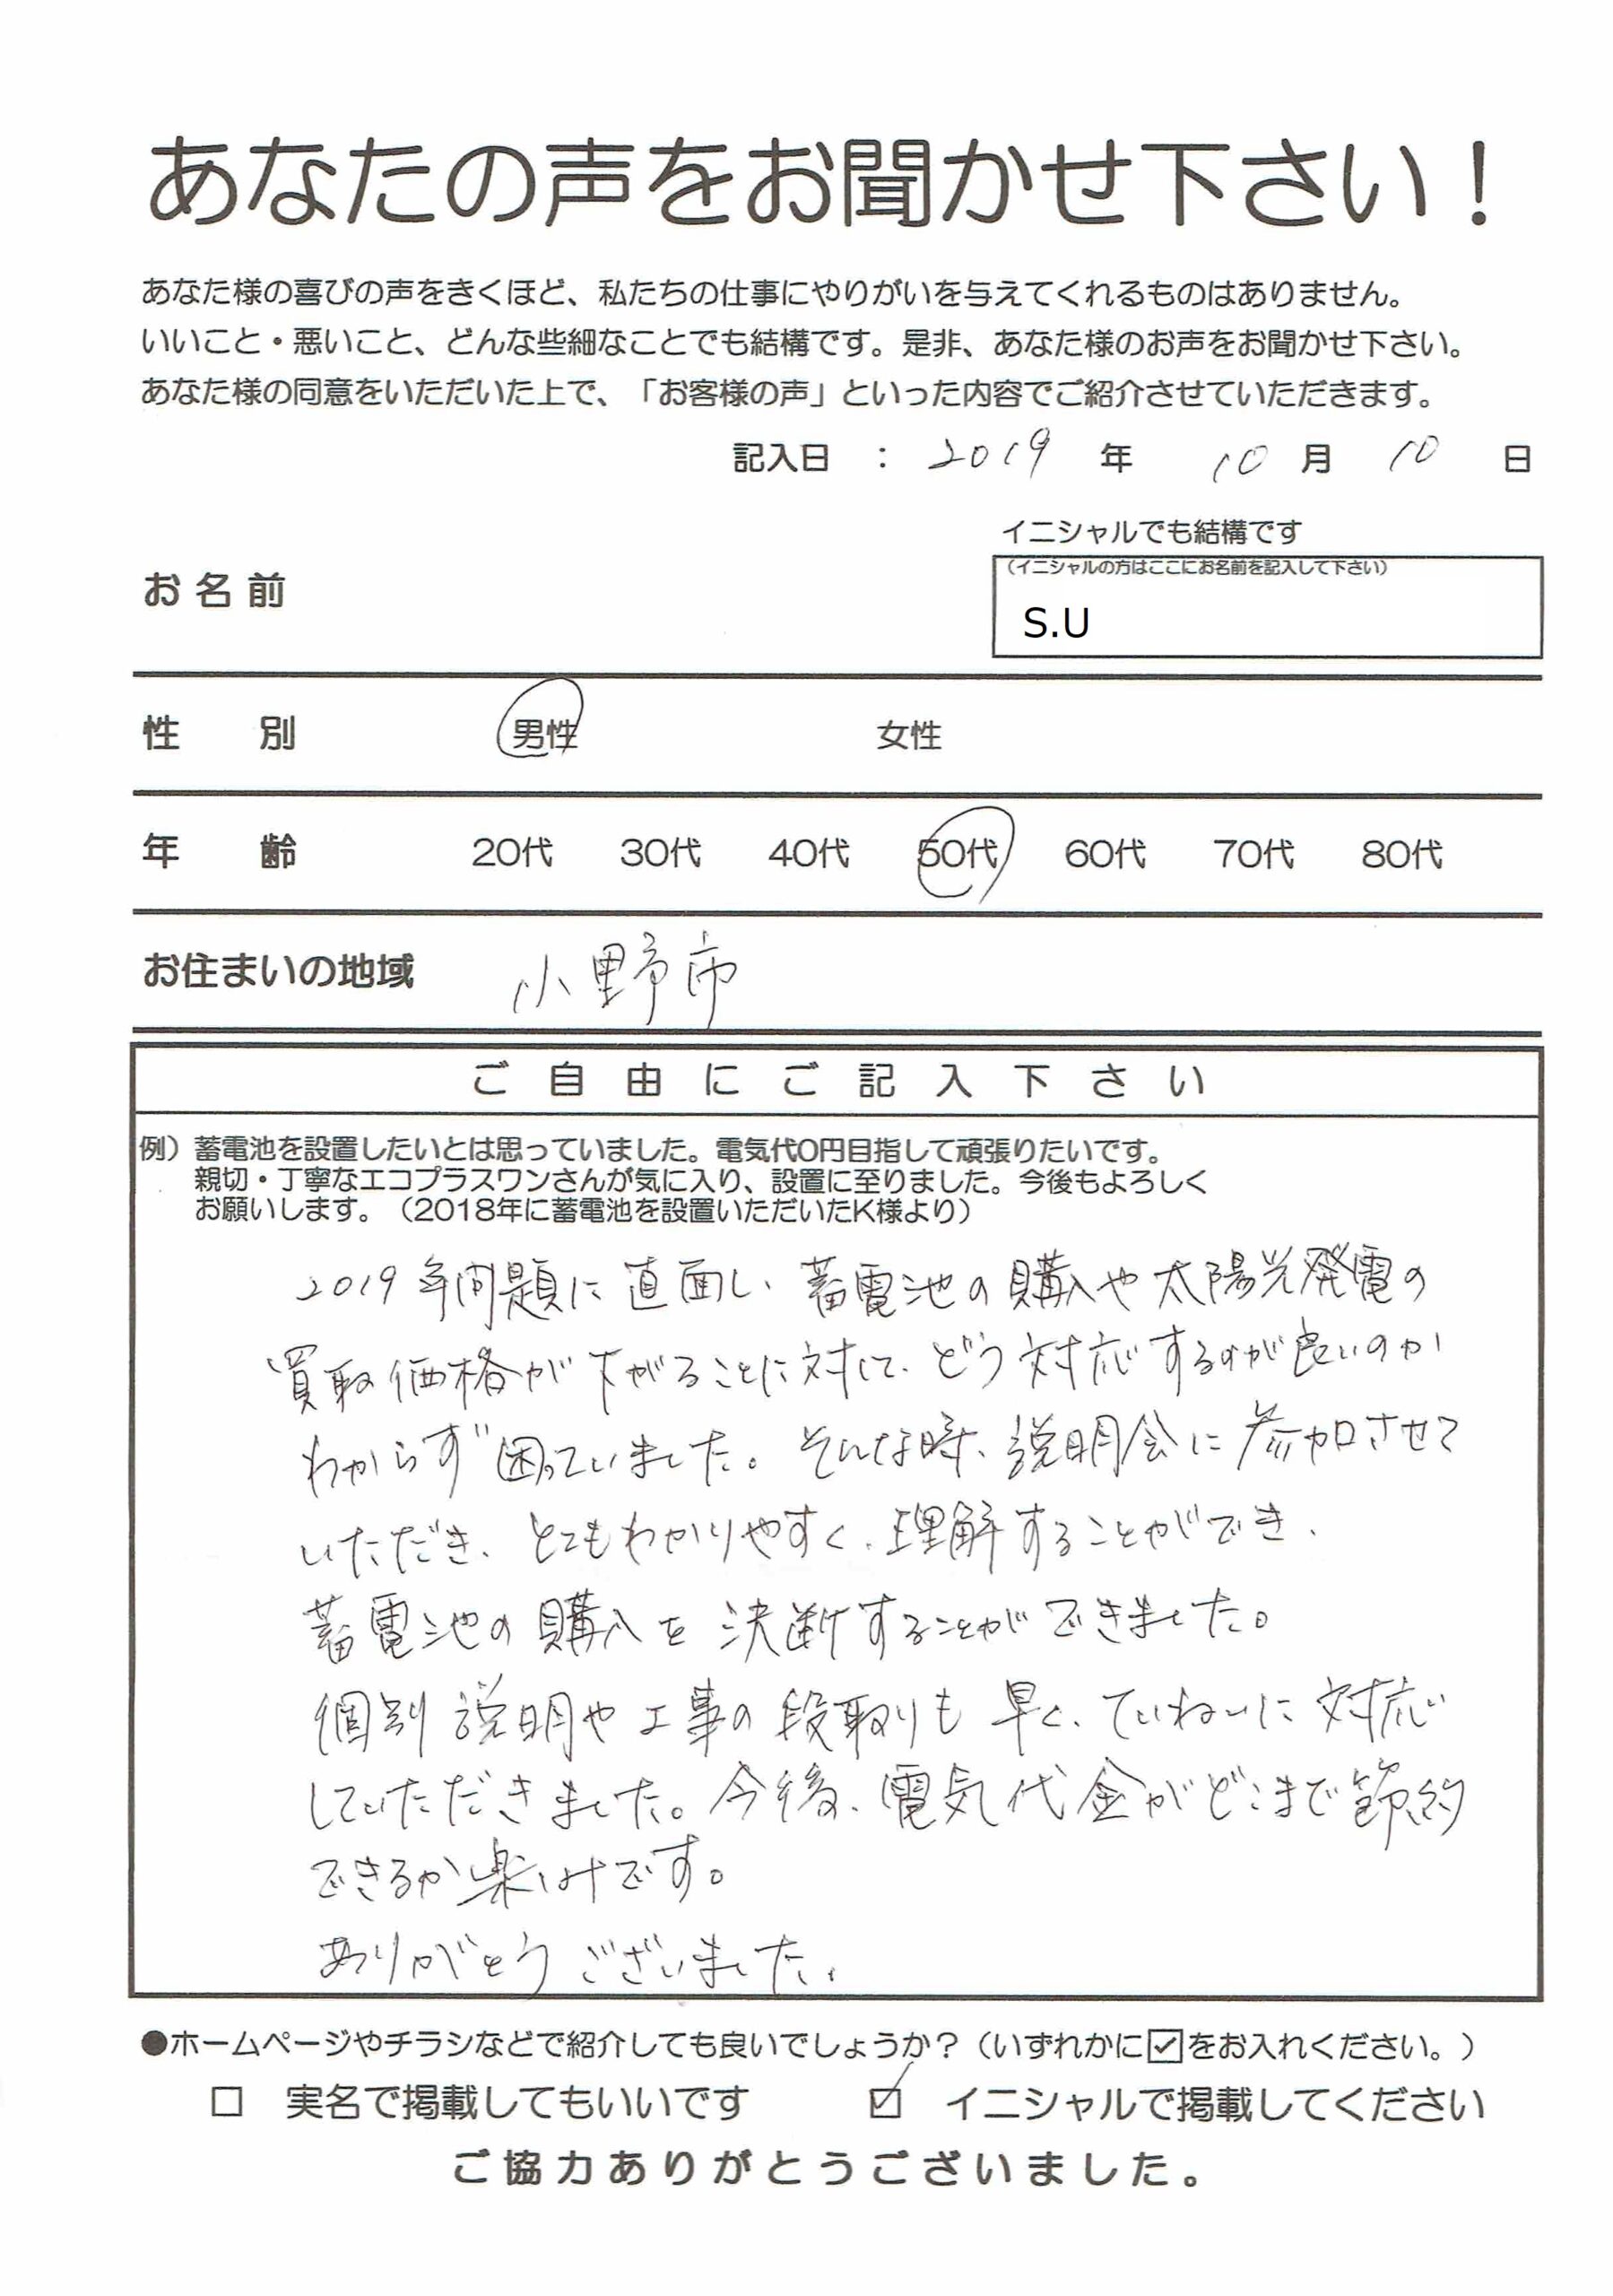 あなたの声をお聞かせ下さい！
あなた様の喜びの声をきくほど、私たちの仕事にやりがいを与えてくれるものはありません。
いいこと・悪いこと、どんな些細なことでも結構です。是非、あなた様のお声をお聞かせ下さい。
あなた様の同意をいただいた上で、「お客様の声」といった内容でご紹介させていただきます。
記入日 ： 2019 年 10 月 10 日
イニシャルでも結構です
お名前
（イニシャルの方はここにお名前を記入して下さい）
S.U
性 別 男性 女性
年 齢 20代 30代 40代 50代 60代 70代 80代
お住まいの地域 小野市
ご自由にご記入下さい
例）蓄電池を設置したいとは思っていました。電気代0円目指して頑張りたいです。
親切・丁寧なエコプラスワンさんが気に入り、設置に至りました。今後もよろしく
お願いします。（2018年に蓄電池を設置いただいたK様より）
2019年問題に直面し、蓄電池の購入や太陽光発電の
買取価格が下がることに対して、どう対応するのが良いのか
わからず困っていました。そんな時、説明会に参加させて
いただき、とてもわかりやすく、理解することができ、
蓄電池の購入を決断することができました。
個別説明や工事の段取りも早く、ていねいに対応
していただきました。今後、電気代金がどこまで節約
できるか楽しみです。
ありがとうございました。
●ホームページやチラシなどで紹介しても良いでしょうか？（いずれかに☑をお入れください。）
□ 実名で掲載してもいいです ☑ イニシャルで掲載してください
ご協力ありがとうございました。